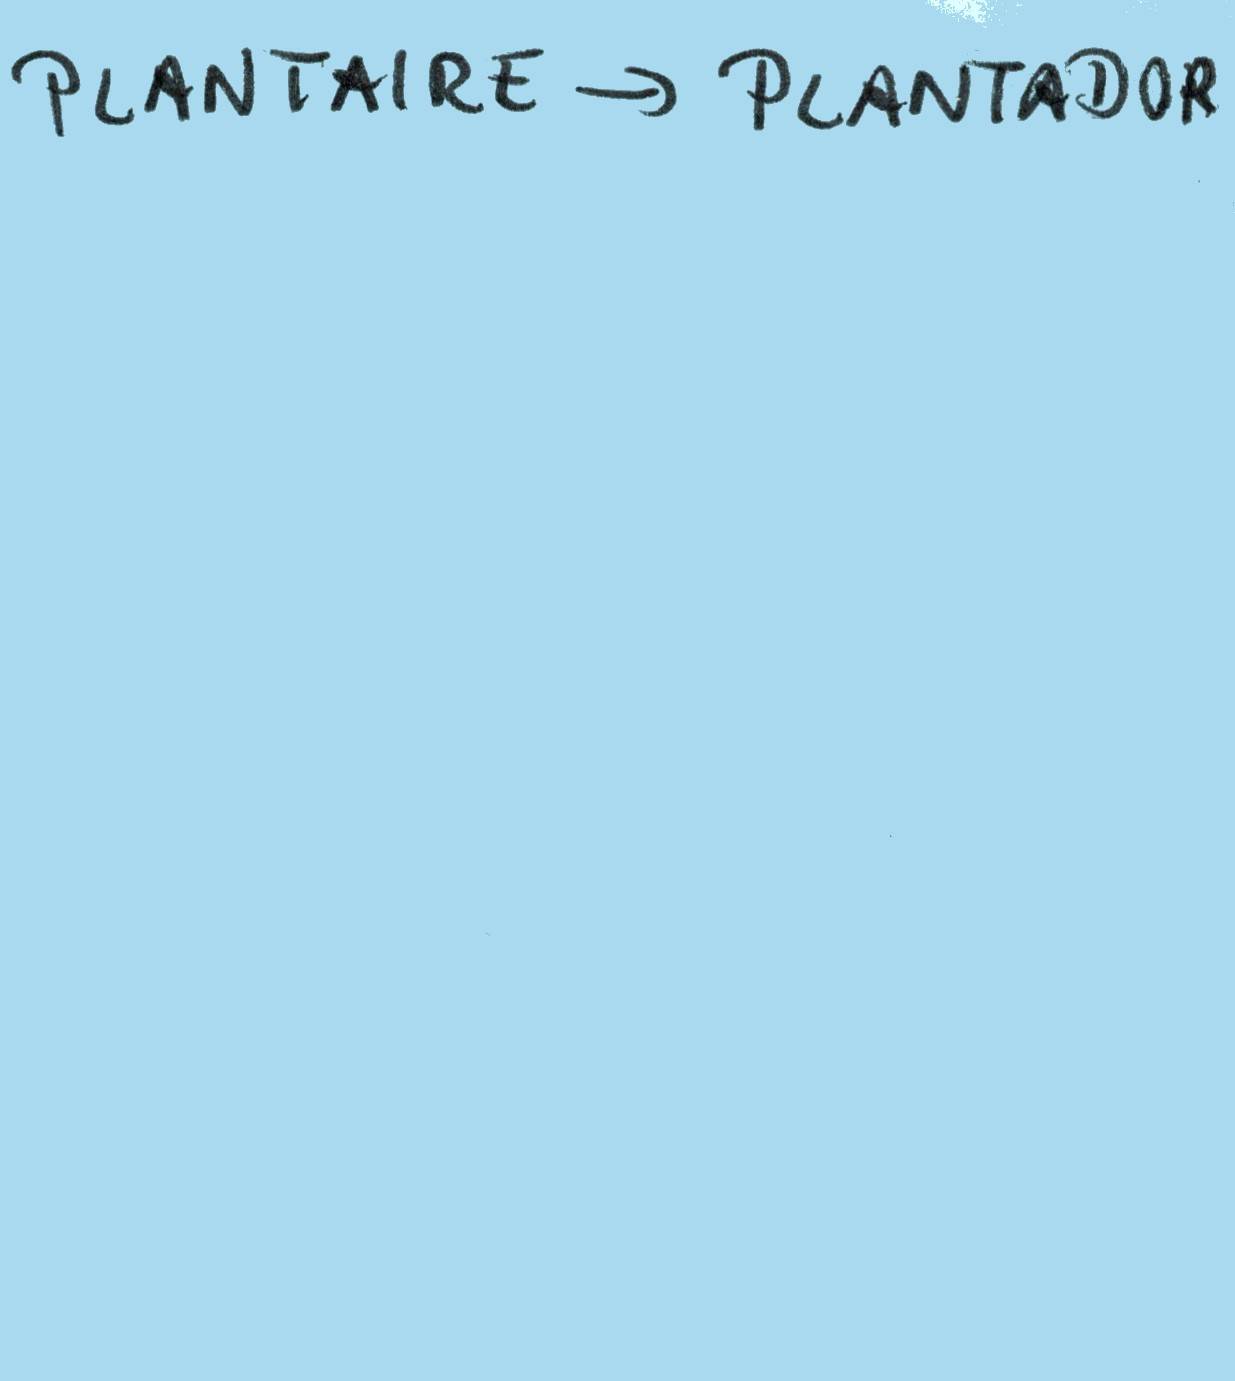 PLANTAIRE → PLANTADOR